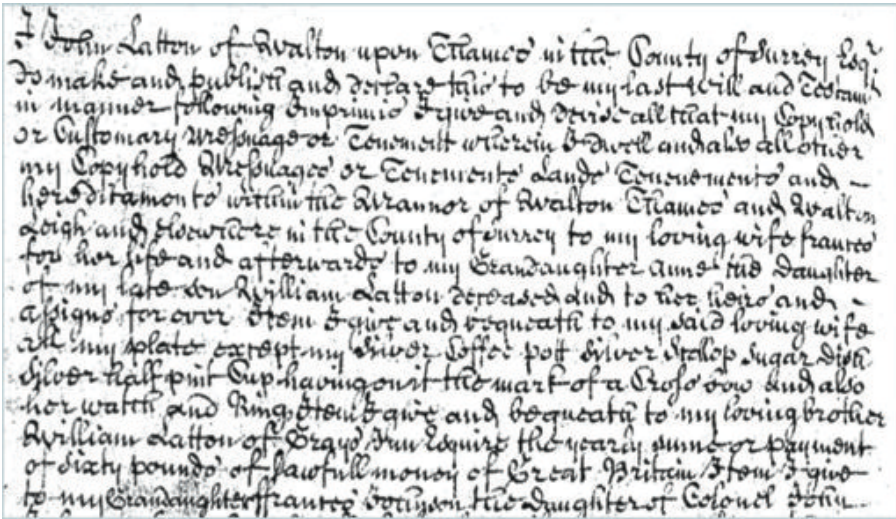 I John Latton of Walton upon Thames in the County of Surrey Esqr.
do make and publish and declare this to be my last Will and Testamt
in manner following Imprimis I give and devise all that my Copyhold
or Customary Messuage or Tenement wherein I dwell and also all other
my Copyhold Messuages or Tenements Lands Tenenements and
hereditaments within the Mannor of Walton Thames and Walton
Leigh and elsewhere in the County of Surrey to my loving wife frances
for her life and afterwards to my Grandaughter Anne the Daughter
of my late son William Latton deceased and to her heirs and
assigns for ever Item I give and bequeath to my said loving wife
all my plate except my Silver Coffee pott Silver Scallop Sugar dish
Silver half pint Cup having on it the mark of a Cross bow and also
her watch and Rings Item I give and bequeath to my loving brother
William Latton of Grays Inn Esquire the yearly summe or payment
of sixty pounds of lawfull money of Great Britain Item I give
to my Grandaughter ffrances the Daughter of Colonel John